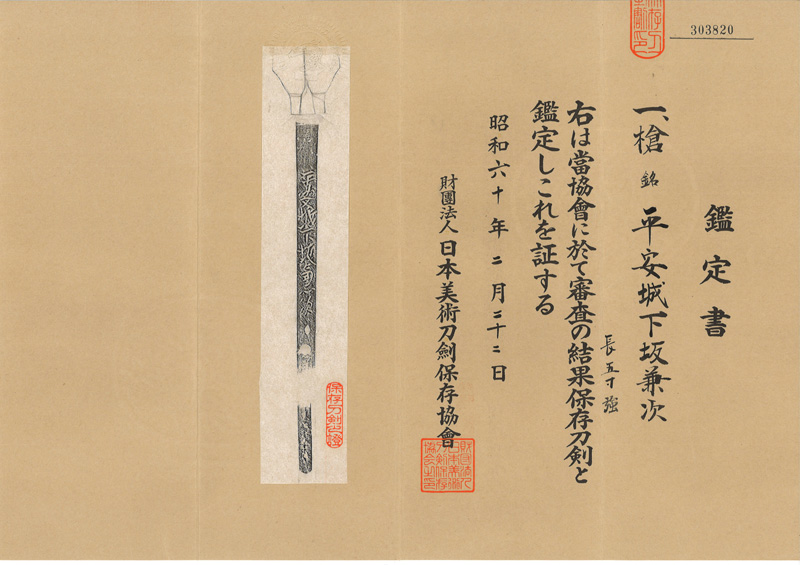 303820
鑑定書
一、槍 銘 平安城下坂兼次
長五寸強
右は當協會に於て審査の結果保存刀剣と
鑑定しこれを証する
昭和六十年二月二十二日
財團法人 日本美術刀劍保存協會
平安城下坂兼次
保存刀剣之證